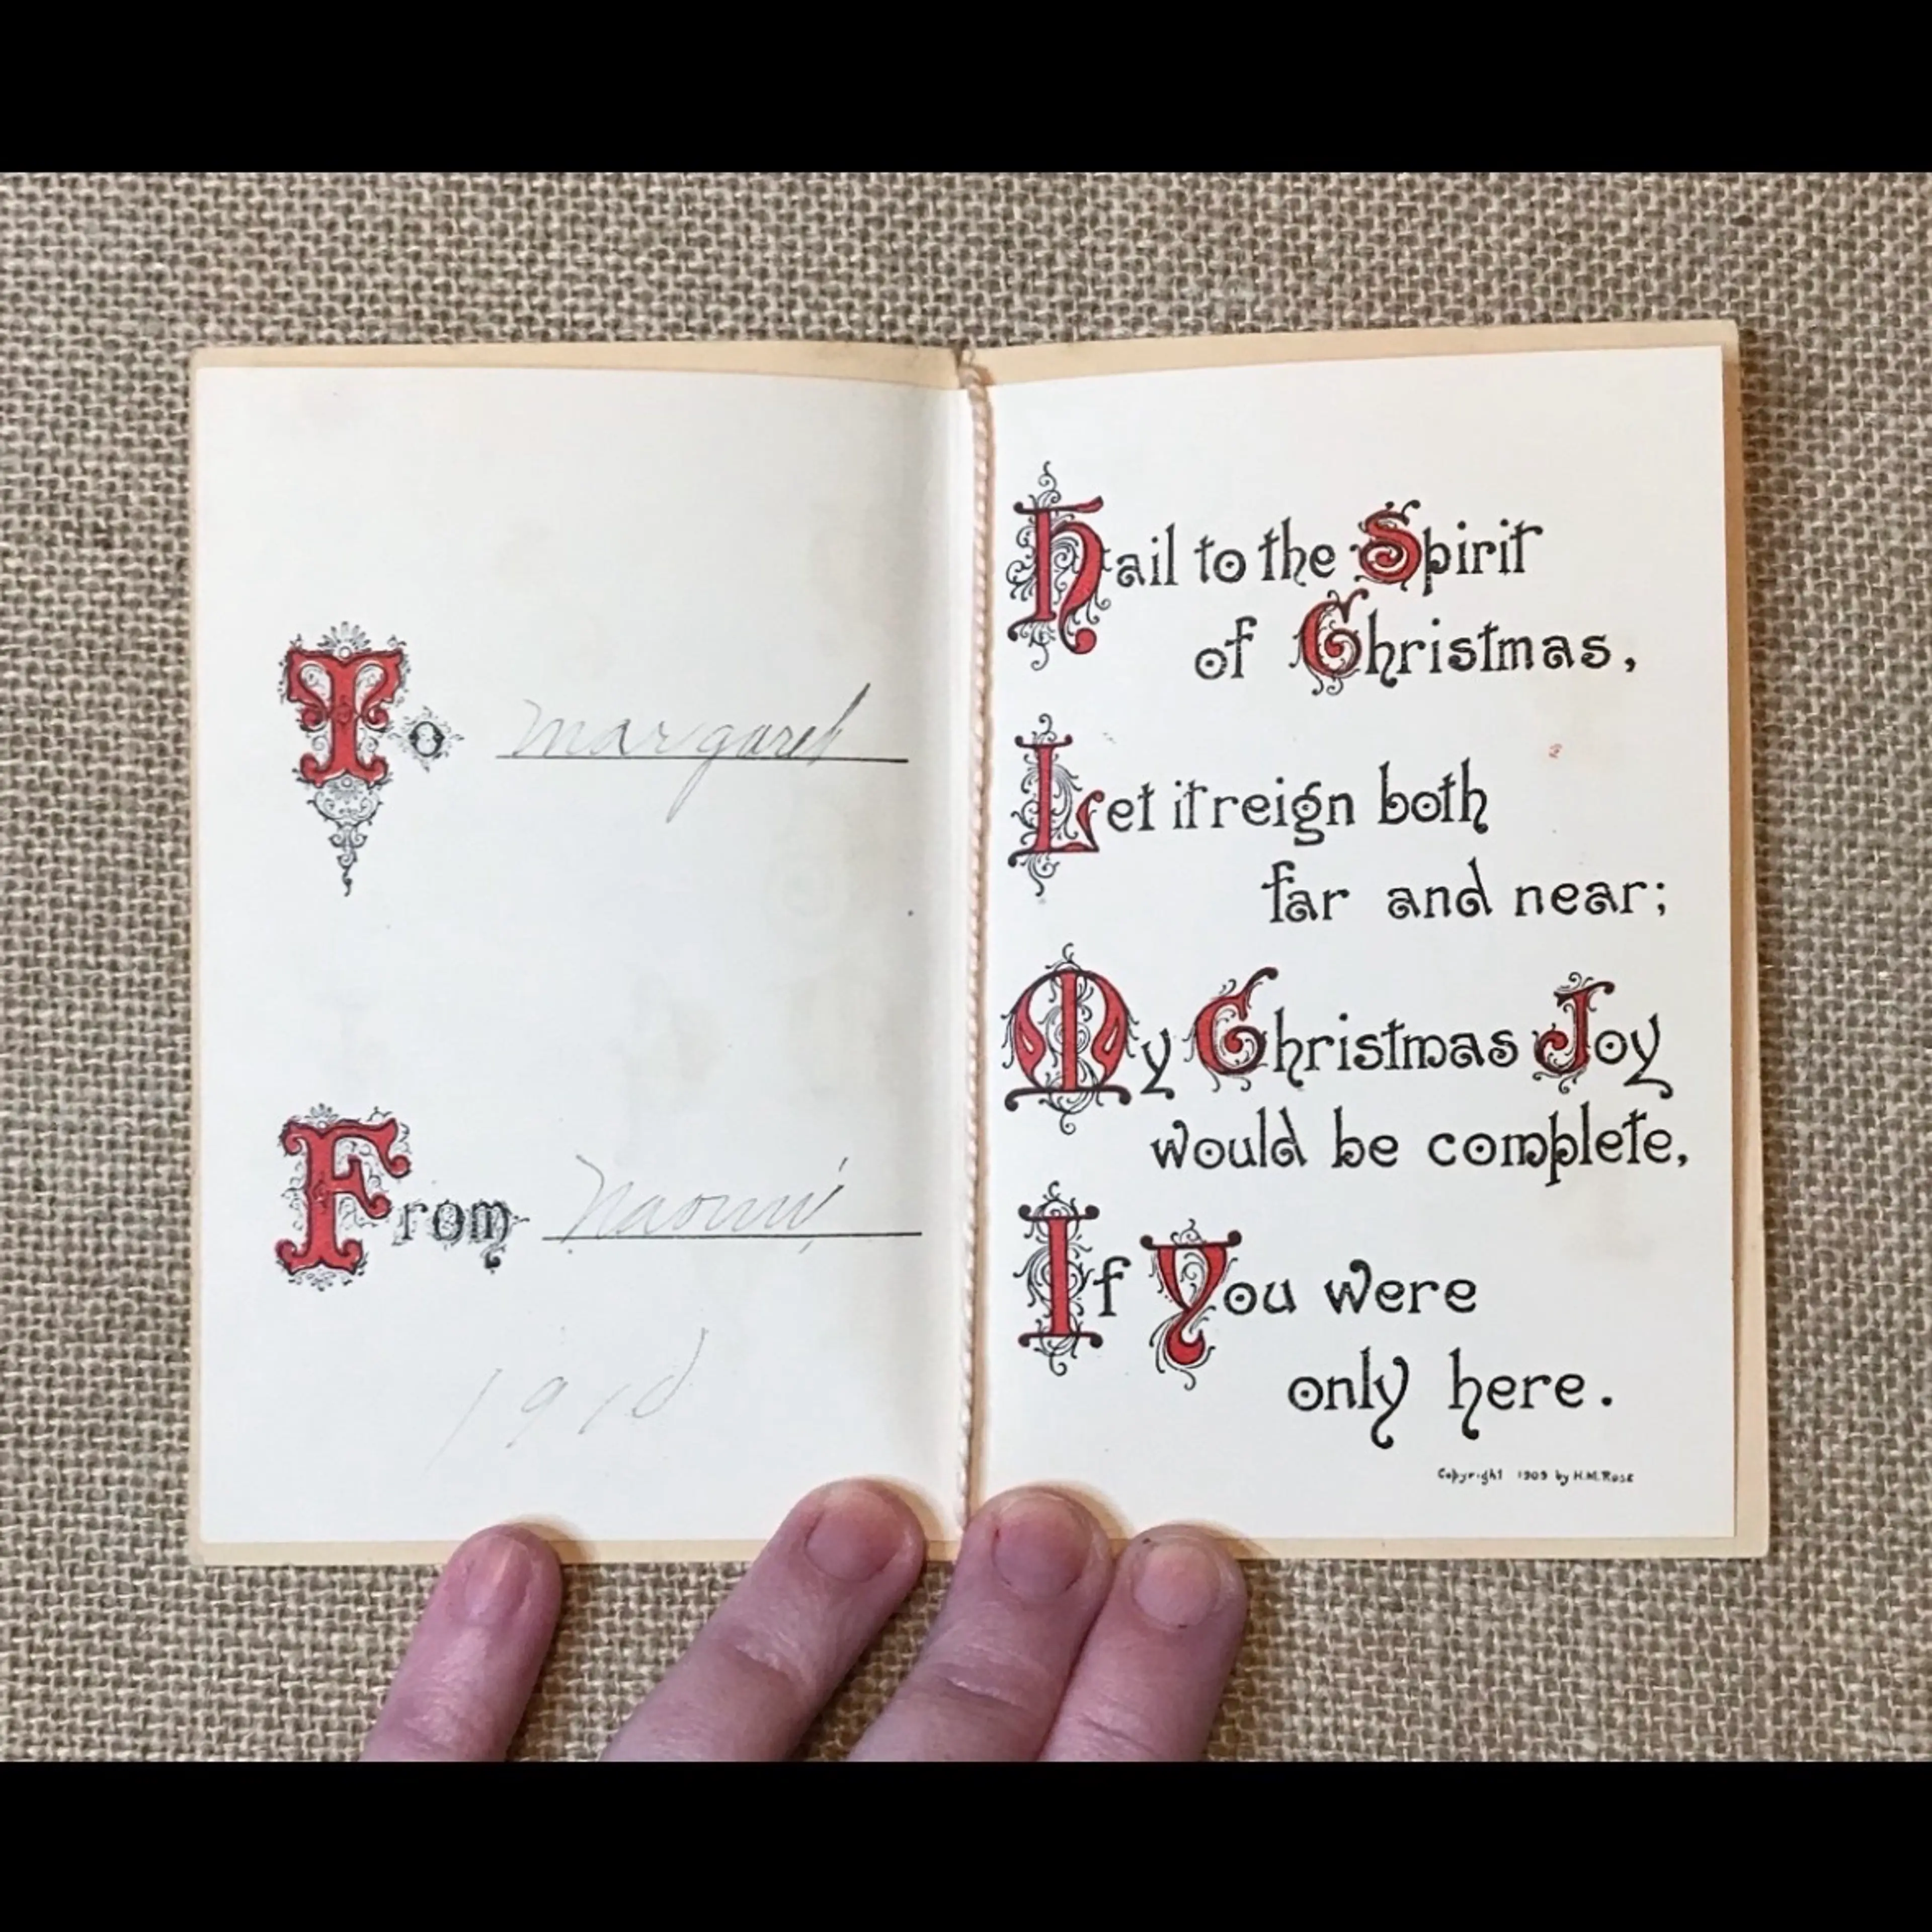 To Margaret
From Naomi
1910
Hail to the Spirit
of Christmas,
Let it reign both
far and near;
My Christmas Joy
would be complete,
If You were
only here.
Copyright 1909 by H.M. Rose